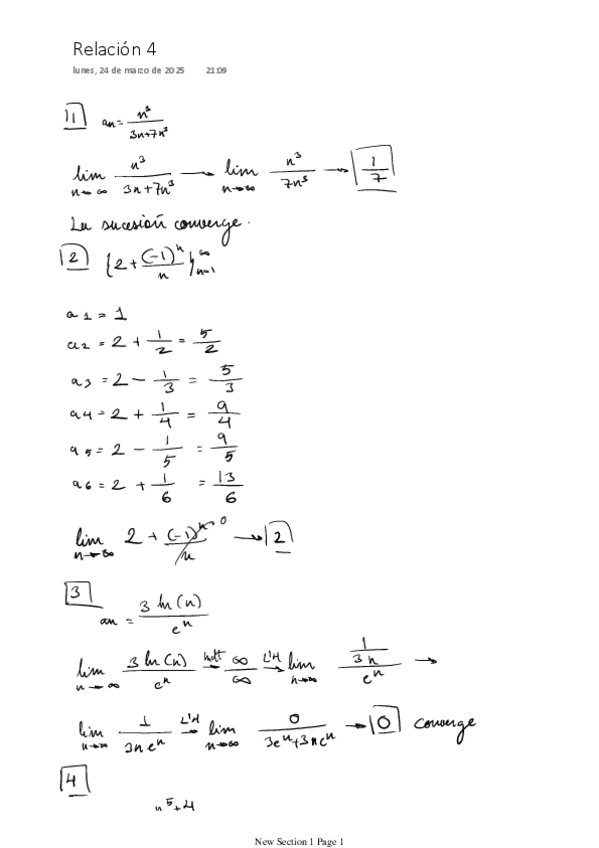 Relación 4
lunes, 24 de marzo de 2025 21:09
1 an = n³/(3n+7n³)
lim n→∞ n³/(3n+7n³) → lim n→∞ n³/(7n³) → 1/7
La sucesión converge.
2 {2 + (-1)ⁿ/n}∞ n=1
a1 = 1
a2 = 2 + 1/2 = 5/2
a3 = 2 - 1/3 = 5/3
a4 = 2 + 1/4 = 9/4
a5 = 2 - 1/5 = 9/5
a6 = 2 + 1/6 = 13/6
lim n→∞ 2 + (-1)ⁿ/n → 0 → 2
3
an = 3 ln(n)/eⁿ
lim n→∞ 3 ln(n)/eⁿ → ∞/∞ L'H → lim n→∞ (1/3n)/eⁿ →
lim n→∞ 1/(3neⁿ) L'H → lim n→∞ 0/(3eⁿ+3neⁿ) → 0 converge
4
n⁵+4
New Section 1 Page 1